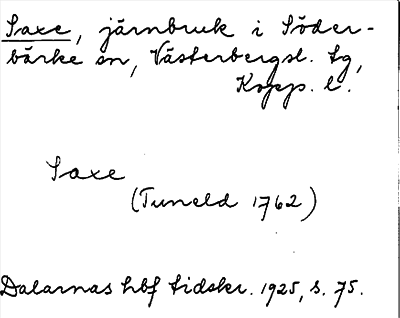 Saxe, järnbruk i Söder-
bärke sn, Västerbergsl. tg,
Kopp. l.
Saxe
(Tuneld 1762)
Dalarnas hbf tidskr. 1925, s. 75.